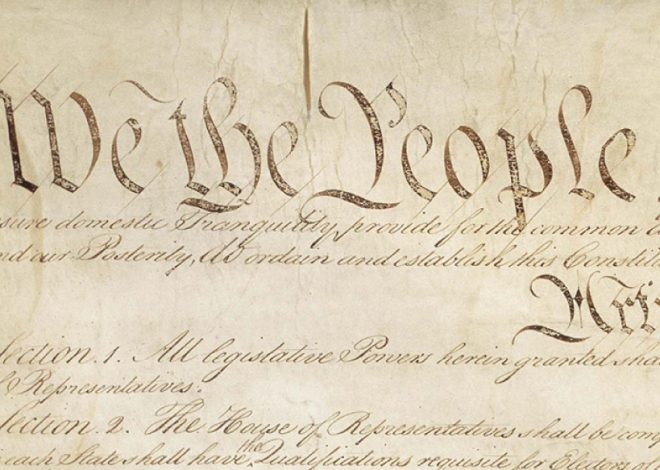 We the People
sure domestic Tranquility, provide for the common
our Posterity, do ordain and establish this
Section. 1. All legislative Powers herein granted
Representatives.
Section. 2. The House of Representatives shall be
the
each State shall have Qualifications requisite for